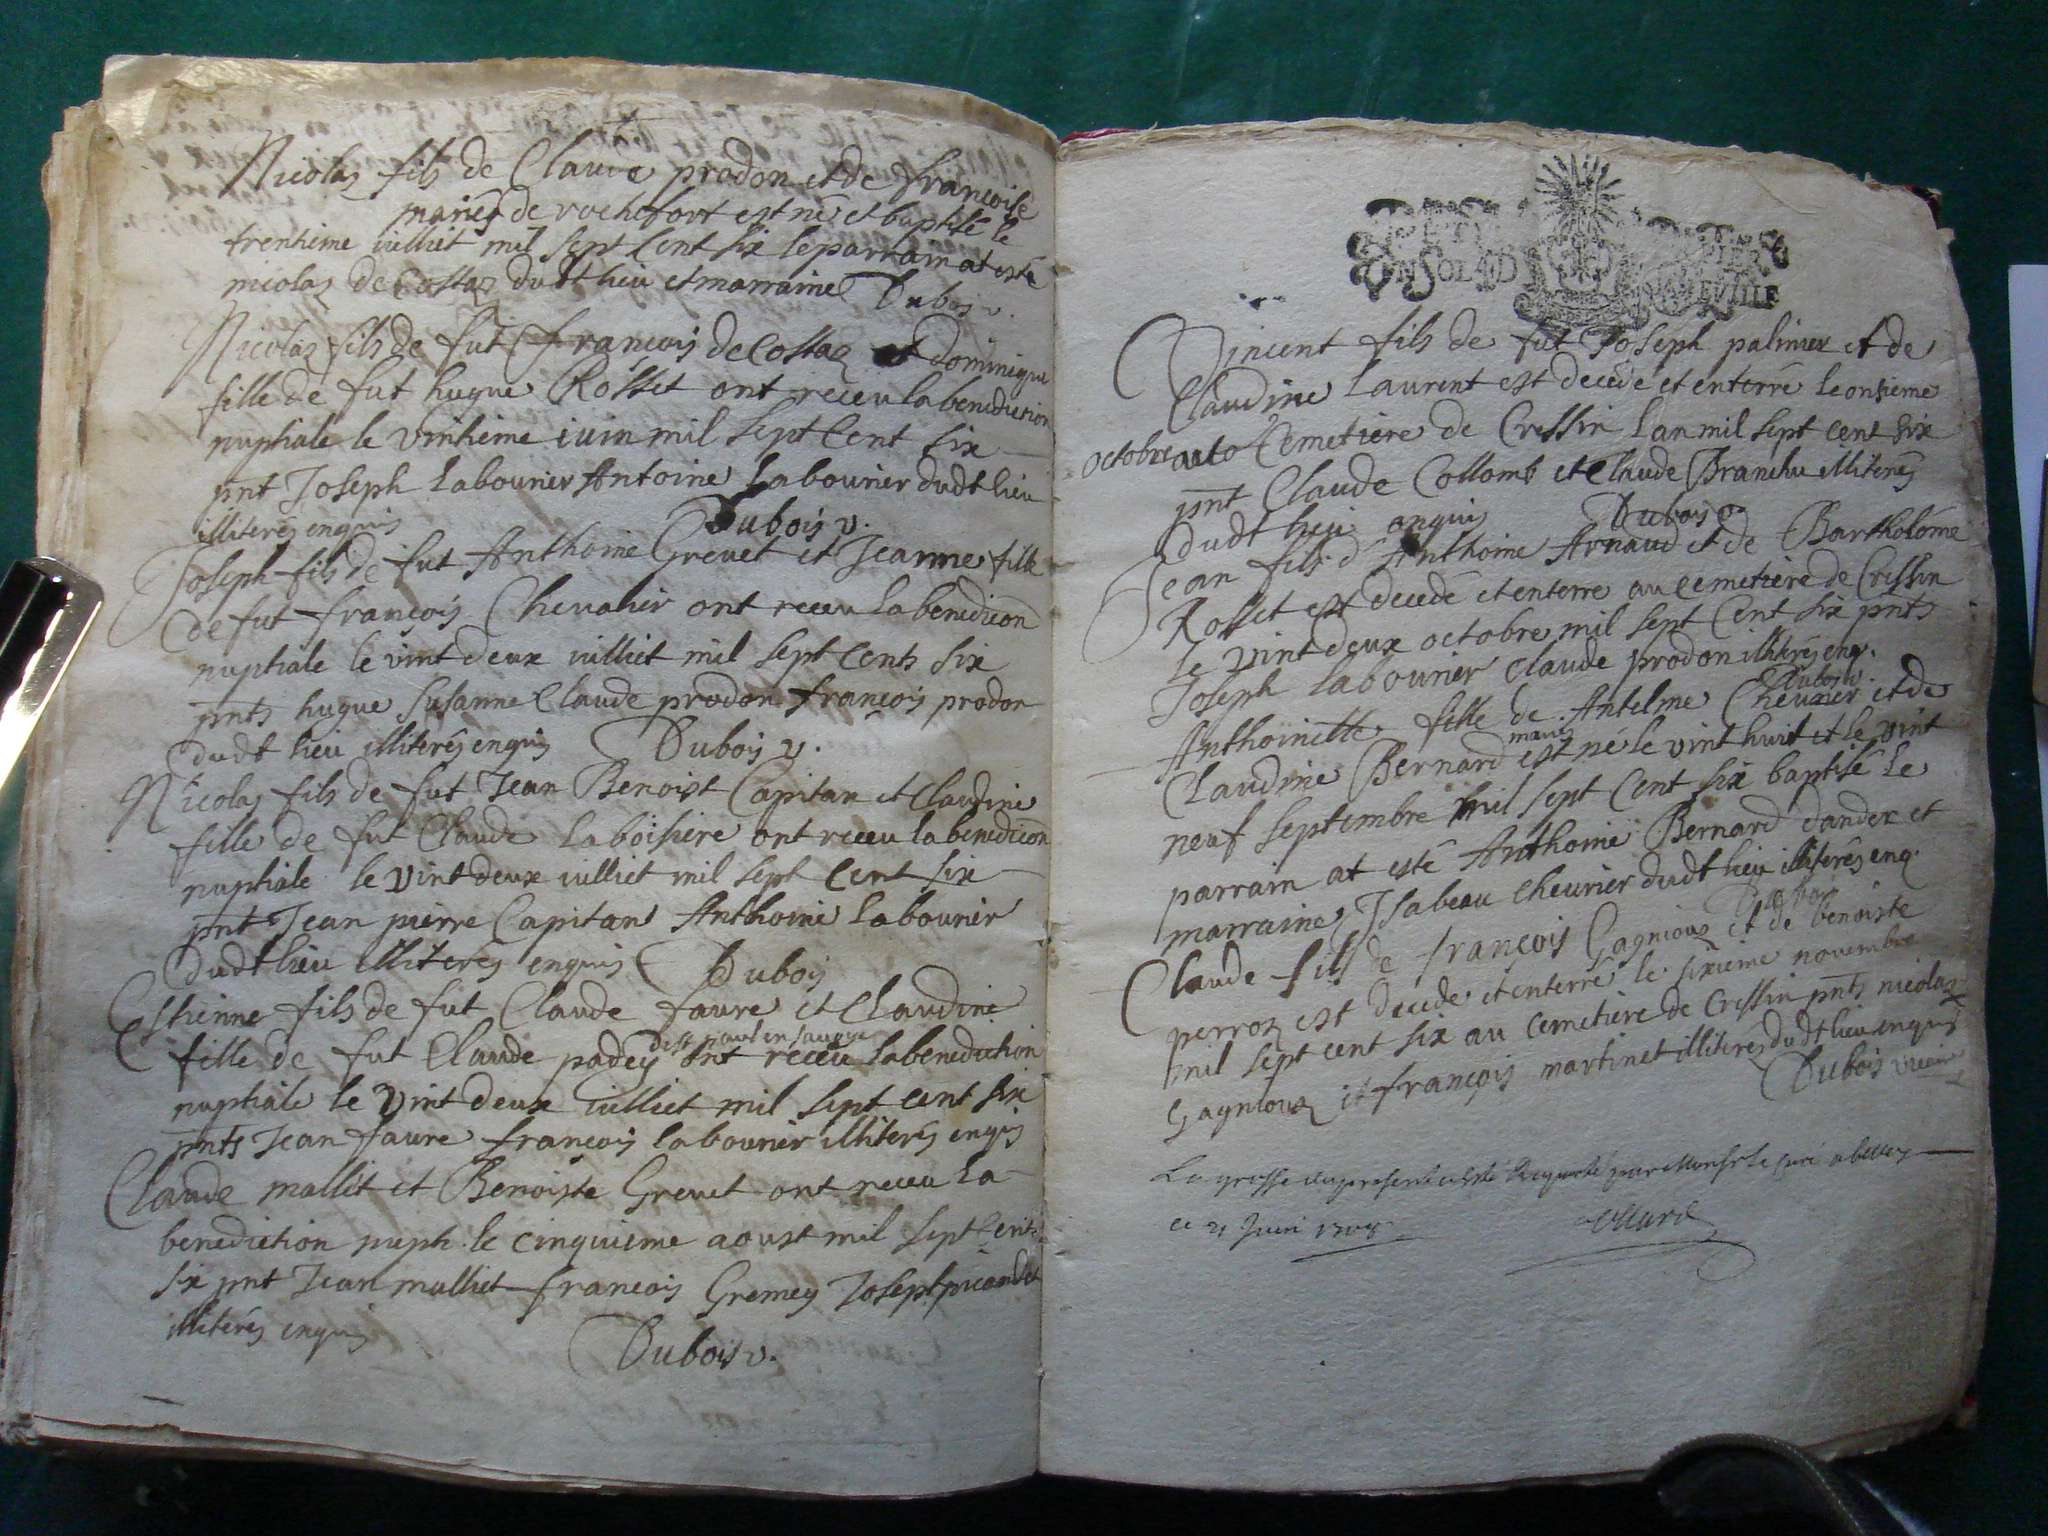 Nicolas fils de Claude prodon et de françoise
mariés de rochefort est né et baptisé le
trentieme iulliet mil sept Cent six le parrain at esté
nicolas de Costaz dudt lieu et marraine Dubois v.
Nicolas fils de fut francois de Costaz et dominique
fille de fut hugue Rosset ont receu la benediction
nuptiale le vintieme iuin mil sept Cent six
pnt Joseph Labourier Antoine Labourier dudt lieu
illiterés enquis Dubois v.
Joseph fils de fut Anthoine Grevet et Jeanne fille
de fut françois Chevalier ont receu la benedicon
nuptiale le vint deux iulliet mil sept Cents six
pnts hugue Susanne Claude prodon françois prodon
dudt lieu illiterés enquis Dubois v.
Nicolas fils de fut Jean Benoist Capitan et Claudine
fille de fut Claude Laboisiere ont receu la benedicon
nuptiale le vint deux iulliet mil sept Cent six
pnt Jean pierre Capitan Anthoine Labourier
dudt lieu illiterés enquis Dubois
Estienne fils de fut Claude faure et Claudine
fille de fut Claude padey ont receu la benediction
nuptiale le vint deux iulliet mil sept cent six
pnts Jean faure françois labourier illiterés enqis
Claude mallit et Benoiste Grevet ont receu la
benediction nuph. le cinquieme aoust mil sept Cents
six pnt Jean malliet françois Gremey Joseph
illiterés enquis
Dubois v.
Vincent fils de fut Joseph palinier et de
Claudine Laurent est decedé et enterré le onsieme
octobre au Cemetiere de Cressin Lan mil sept cent six
pnt Claude Collomb et Claude Branchu illiterés
dudt lieu enquis Dubois v.
Jean fils d'Anthoine Arnaud et de Bartholome
Rosset est decedé et enterré au cemetiere de Cressin
le vint deux octobre mil sept Cent six pnts
Joseph labourier Claude prodon illiterés enq.
Dubois v.
Anthoinette fille de Antelme Chevrier et de
Claudine Bernard mariés est né le vint huit et le vint
neuf septembre mil sept Cent six baptisé le
parrain at esté Anthoine Bernard dandex et
marraine Isabeau chevrier dudt lieu illiterés enq.
Dubois
Claude fils de françois Gagnioux et de benoiste
perroz est decedé et enterré le sixieme novembre
mil sept cent six au cemetiere de Cressin pnts nicolas
Gagnioux et françois martinet illiterés dudt lieu enquis
Dubois vicaire
La grosse du present a esté par Monsr le curé a belley
ce 21 Juin 1708